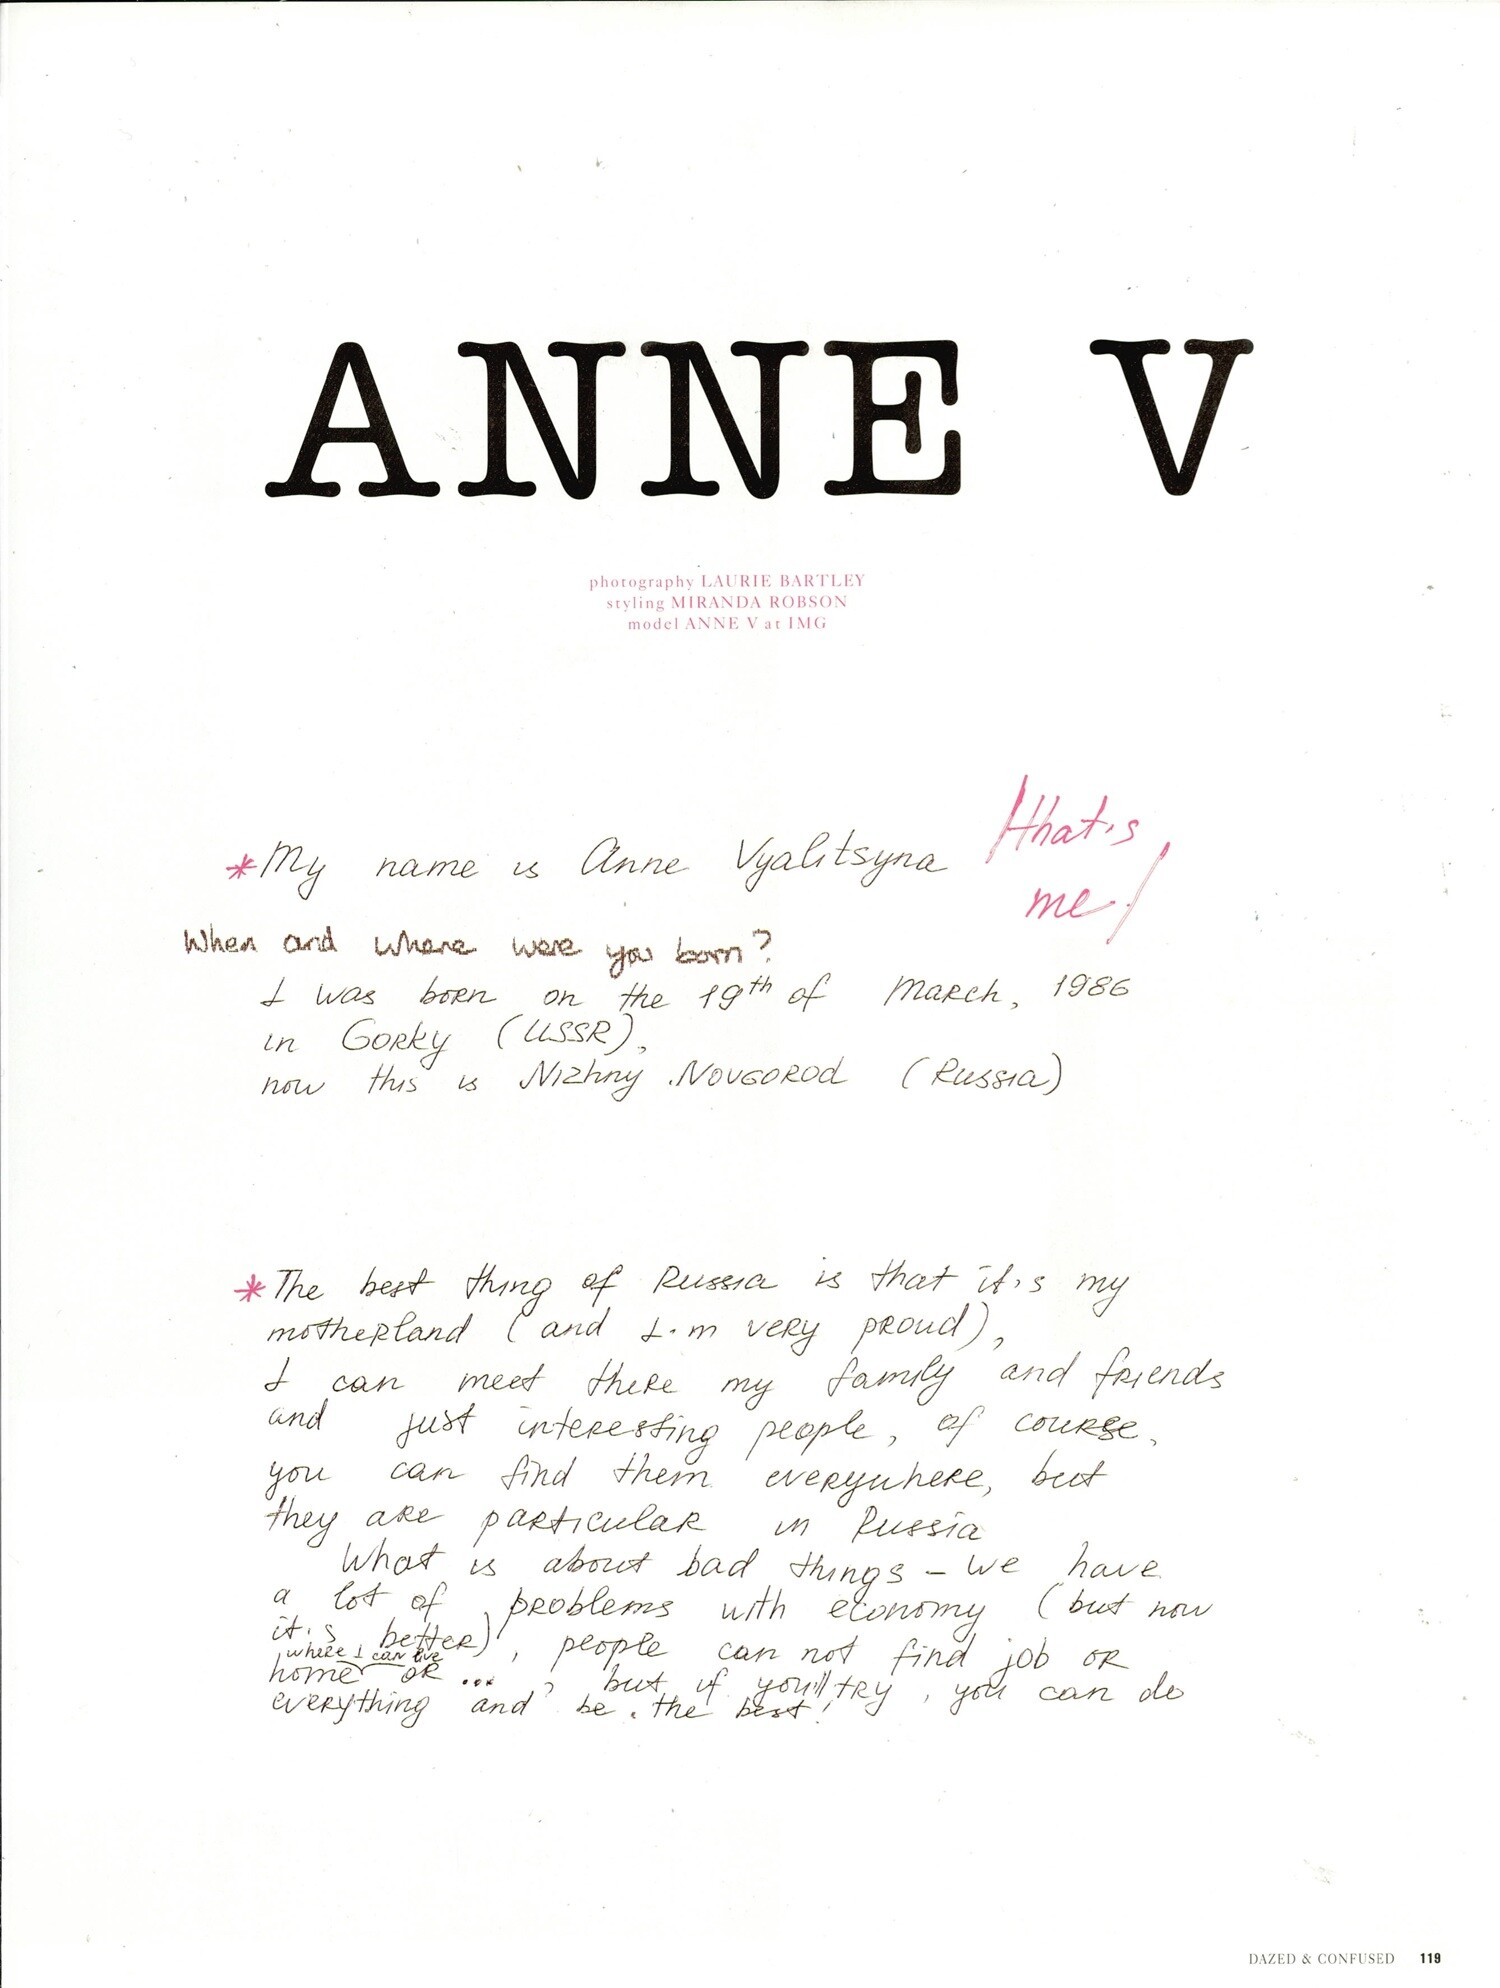 ANNE V
photography LAURIE BARTLEY
styling MIRANDA ROBSON
model ANNE V at IMG
that's
me!
*My name is Anne Vyalitsyna
When and where were you born?
I was born on the 19th of March, 1986
in Gorky (USSR),
now this is Nizhny Novgorod (Russia)
*The best thing of Russia is that it's my
motherland (and I'm very proud),
I can meet there my family and friends
and just interesting people, of course,
you can find them everywhere, but
they are particular in Russia
What is about bad things – we have
a lot of problems with economy (but now
it's better), people can not find job or
where I can live
home or ..., but if you'll try, you can do
everything and be the best!
DAZED & CONFUSED 119